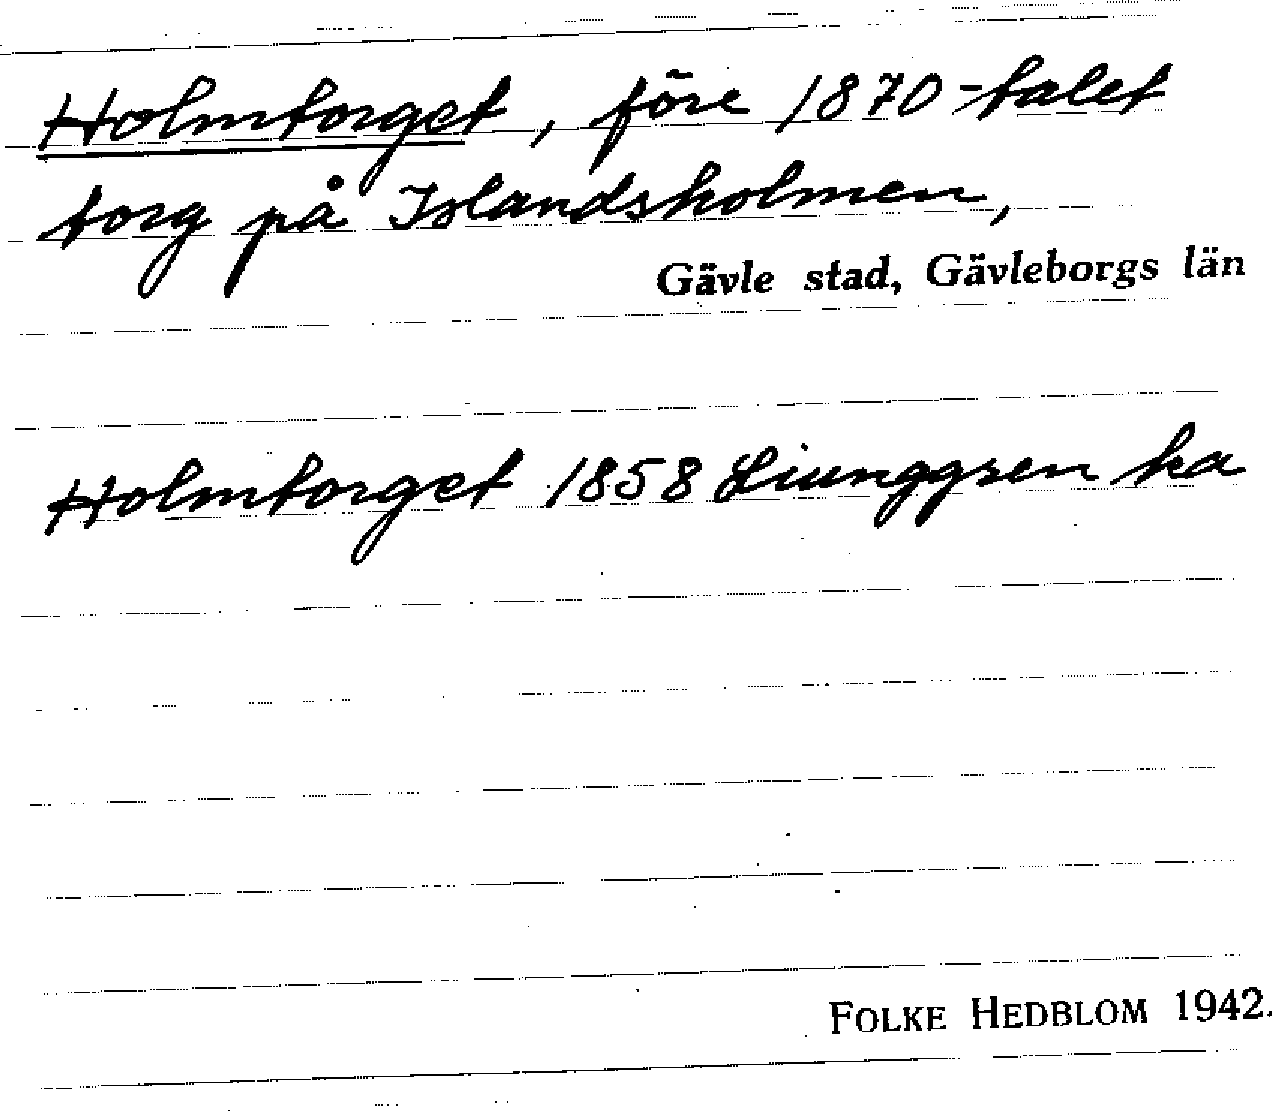 Holmtorget, före 1870-talet
torg på Islandsholmen,
Gävle stad, Gävleborgs län
Holmtorget 1858 Liunggren ka
FOLKE HEDBLOM 1942.